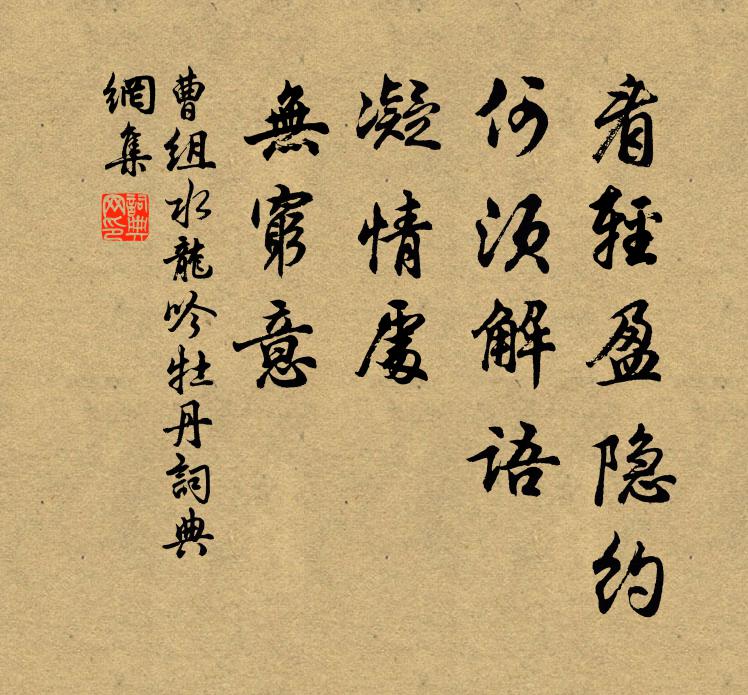 看輕盈隐約
何須解語
凝情處
無窮意
曹組水龍吟牡丹詞典
網集
詞典
网印